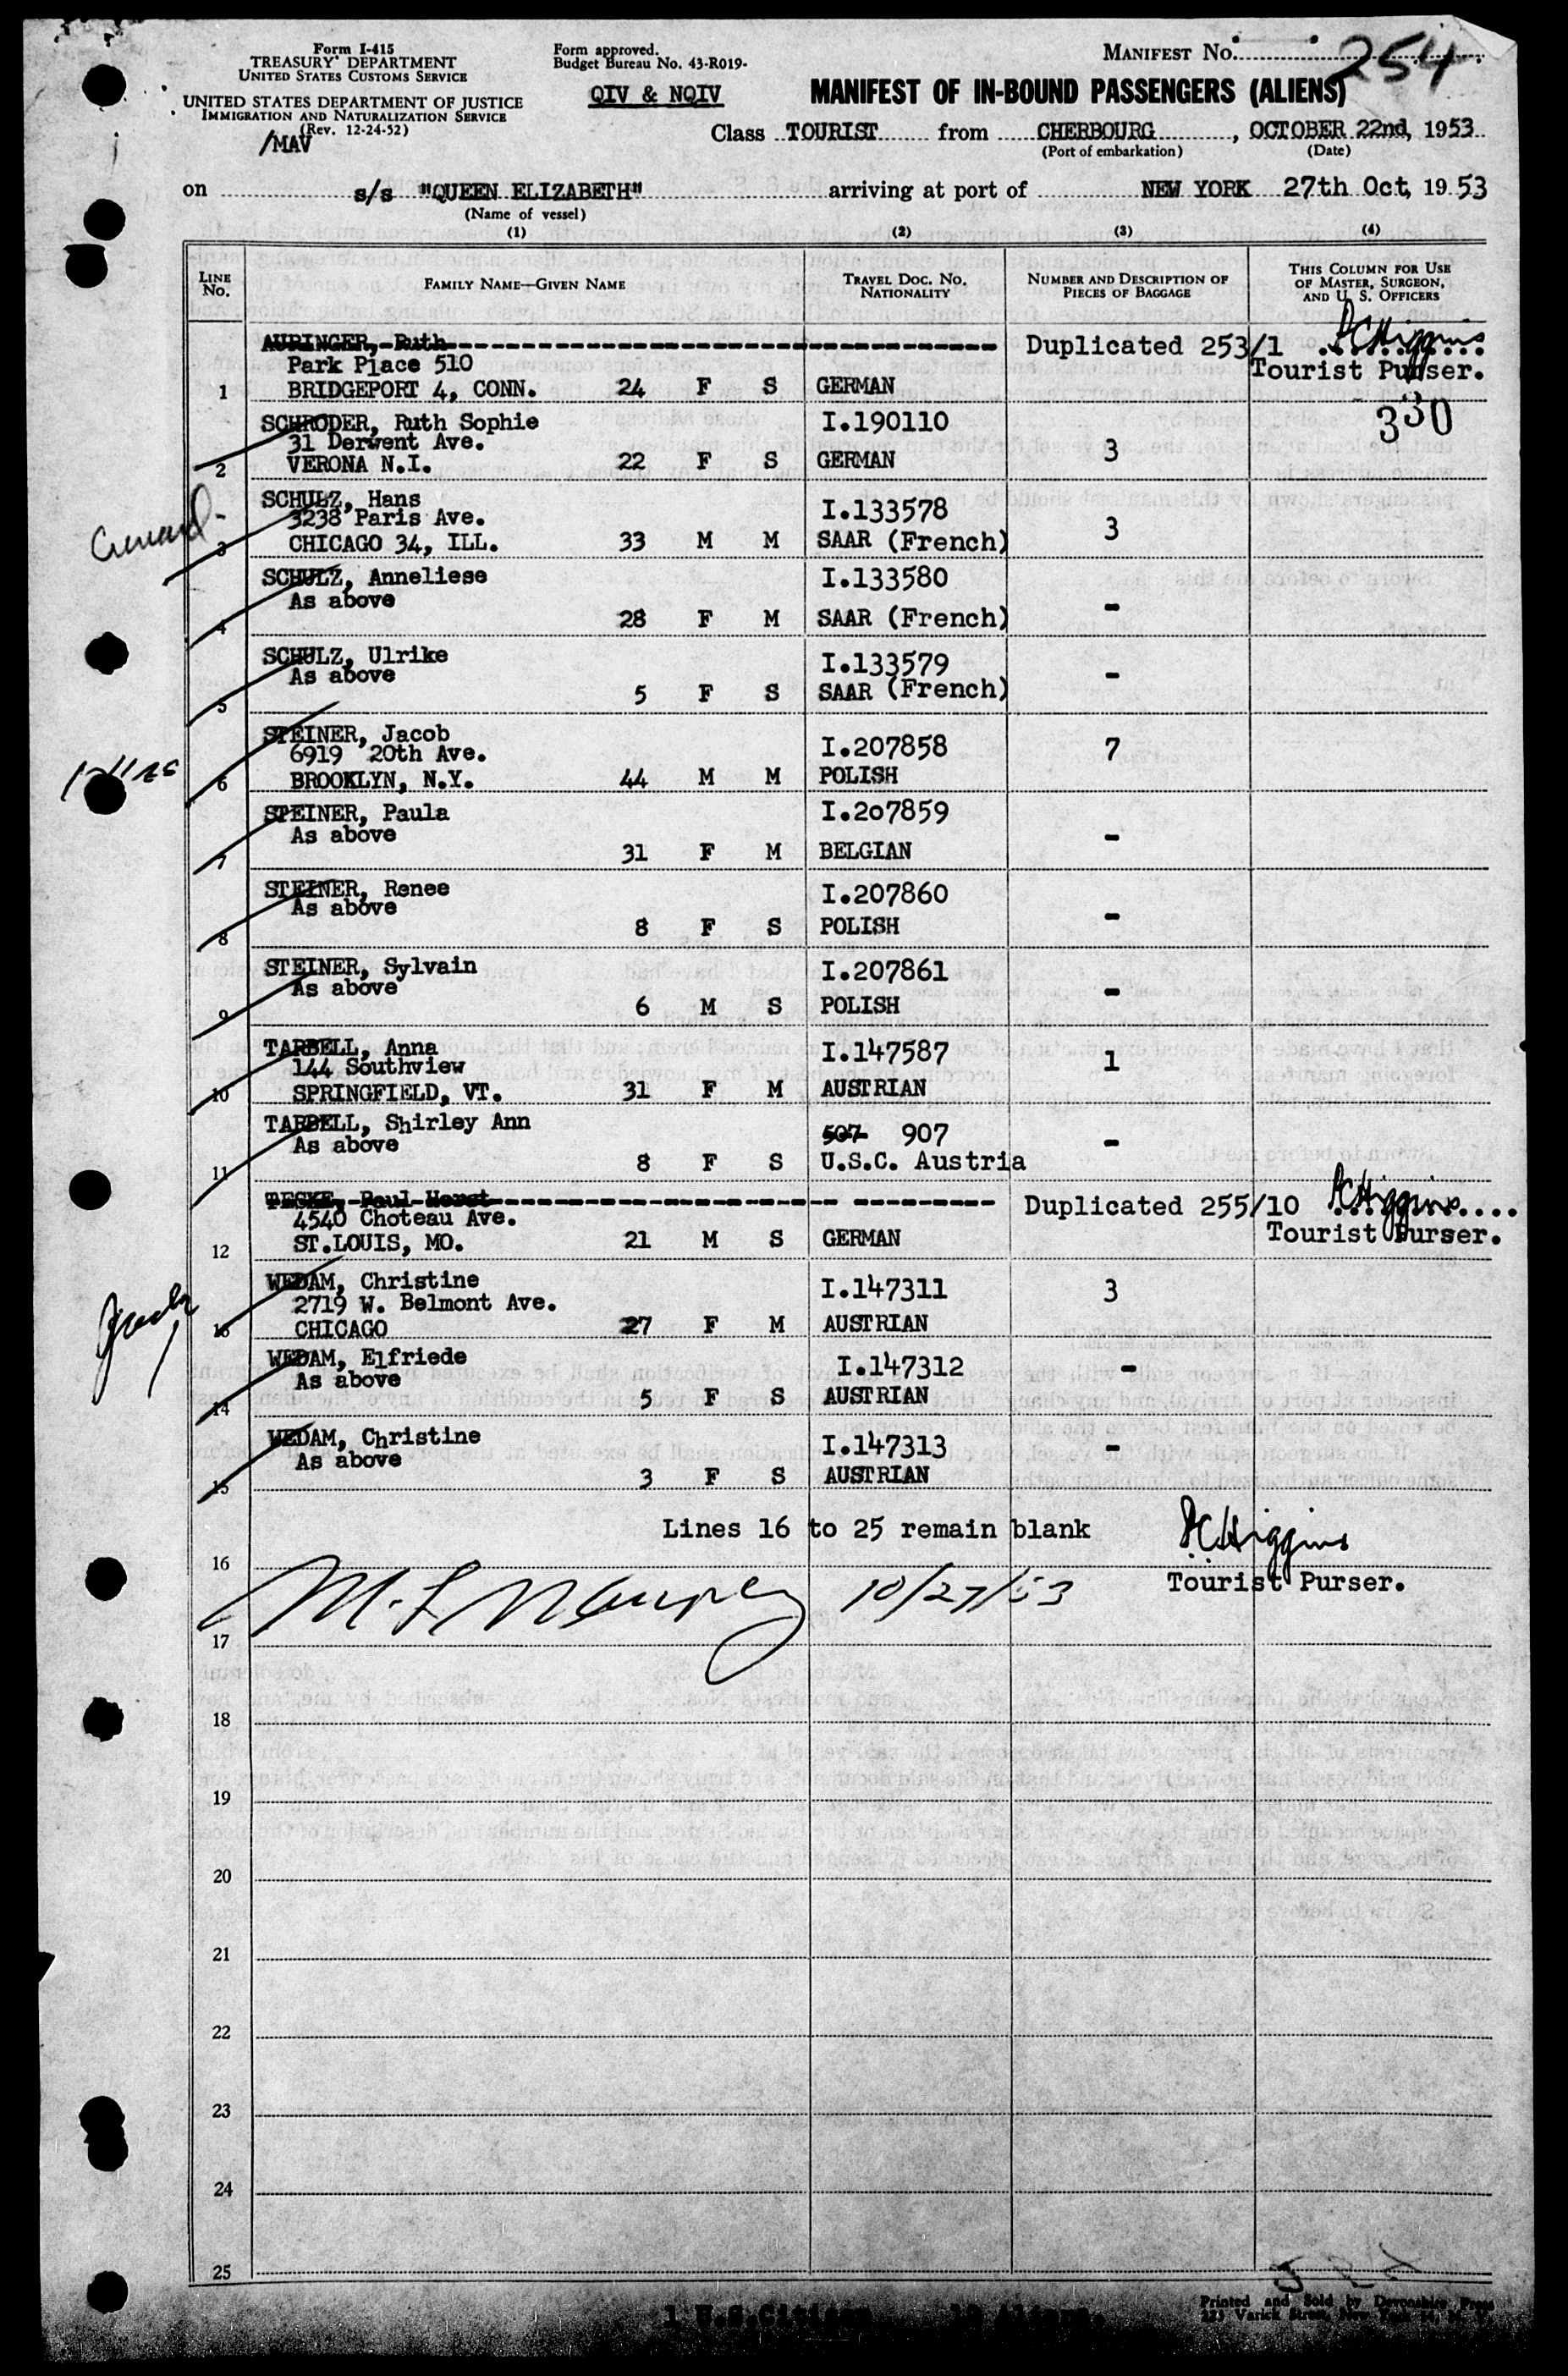 Form I-415
TREASURY DEPARTMENT
UNITED STATES CUSTOMS SERVICE
UNITED STATES DEPARTMENT OF JUSTICE
IMMIGRATION AND NATURALIZATION SERVICE
(Rev. 12-24-52)
/MAV
Form approved.
Budget Bureau No. 43-R019-
QIV & NQIV
MANIFEST NO. 254
MANIFEST OF IN-BOUND PASSENGERS (ALIENS)
Class TOURIST from CHERBOURG, OCTOBER 22nd, 1953
(Port of embarkation) (Date)
on s/s "QUEEN ELIZABETH" arriving at port of NEW YORK 27th Oct, 1953
(Name of vessel)
(1) (2) (3) (4)
LINE NO. FAMILY NAME—GIVEN NAME TRAVEL DOC. NO. NATIONALITY NUMBER AND DESCRIPTION OF PIECES OF BAGGAGE THIS COLUMN FOR USE OF MASTER, SURGEON, AND U. S. OFFICERS
AURINGER, Ruth Duplicated 253/1 Higgins
Park Place 510 Tourist Purser.
1 BRIDGEPORT 4, CONN. 24 F S GERMAN
330
SCHRODER, Ruth Sophie I.190110
31 Derwent Ave. 3
2 VERONA N.I. 22 F S GERMAN
SCHULZ, Hans I.133578
3238 Paris Ave. 3
3 CHICAGO 34, ILL. 33 M M SAAR (French)
SCHULZ, Anneliese I.133580
As above -
4 28 F M SAAR (French)
SCHULZ, Ulrike I.133579
As above -
5 5 F S SAAR (French)
STEINER, Jacob I.207858 7
6919 20th Ave.
6 BROOKLYN, N.Y. 44 M M POLISH
STEINER, Paula I.207859
As above -
7 31 F M BELGIAN
STEINER, Renee I.207860
As above -
8 8 F S POLISH
STEINER, Sylvain I.207861
As above -
9 6 M S POLISH
TARBELL, Anna I.147587
144 Southview 1
10 SPRINGFIELD, VT. 31 F M AUSTRIAN
TARBELL, Shirley Ann 507 907
As above -
11 8 F S U.S.C. Austria
TESKE, Paul Horst Duplicated 255/10 Higgins
4540 Choteau Ave. Tourist Purser.
12 ST.LOUIS, MO. 21 M S GERMAN
WEDAM, Christine I.147311 3
2719 W. Belmont Ave.
13 CHICAGO 27 F M AUSTRIAN
WEDAM, Elfriede I.147312 -
As above
14 5 F S AUSTRIAN
WEDAM, Christine I.147313 -
As above
15 3 F S AUSTRIAN
Lines 16 to 25 remain blank Higgins
16 Tourist Purser.
10/27/53
17
18
19
20
21
22
23
24
25
1 U.S.Citizen Aliens.
Printed and Sold by Devonshire Press
225 Varick Street, New York 14, N. Y.